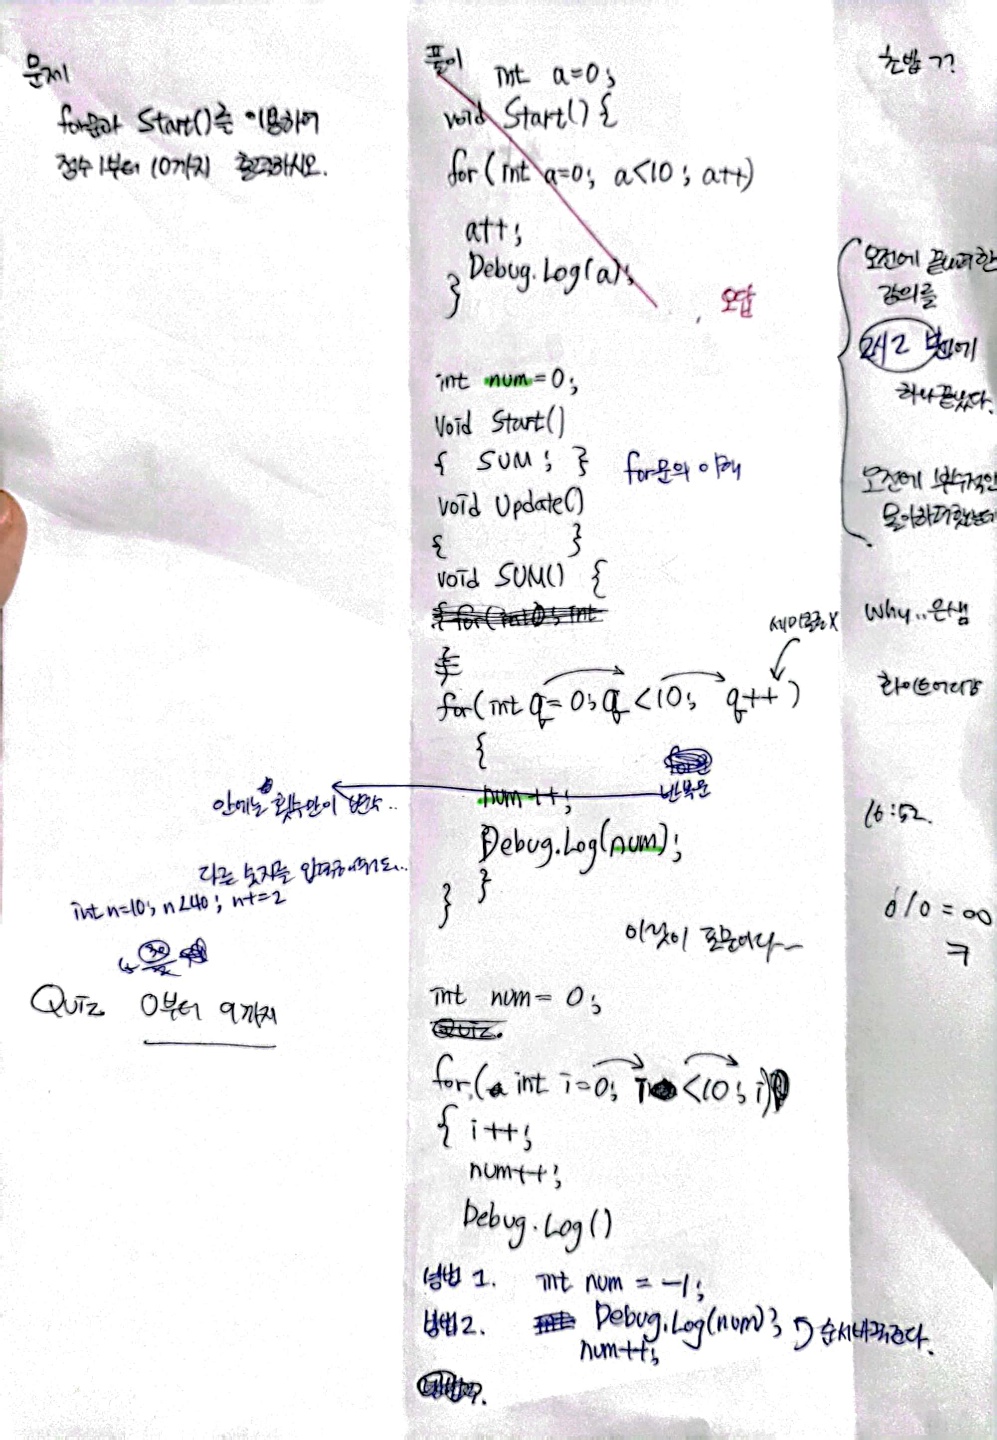 문제
for문과 Start()를 이용하여
점수 1부터 10까지 출력하시오.
풀이
int a=0;
void Start() {
for(int a=0; a<10; a++)
a++;
Debug.Log(a);
}
오답
int num=0;
void Start()
{ SUM; }
for문의 이해
void Update()
{ }
void SUM() {
세미콜론X
for(int q=0; q<10; q++)
{
반복문
num++;
안에는 횟수만이 반복..
Debug.Log(num);
}
}
다른 숫자를 입력해도..
int n=10; n<40; n+=2
이것이 포문이다~
Quiz 0부터 9까지
int num= 0;
for( int i=0; i <10; i)
{ i++;
num++;
Debug.Log()
방법 1. int num = -1;
방법2. Debug.Log(num);
num++;
순서바꾸준다.
초밥 ??
오전에 끝내려한
강의를
2시 2분에
하나끝났다.
오전에
Why..은샘
16:52.
0/0=∞
ㅋ